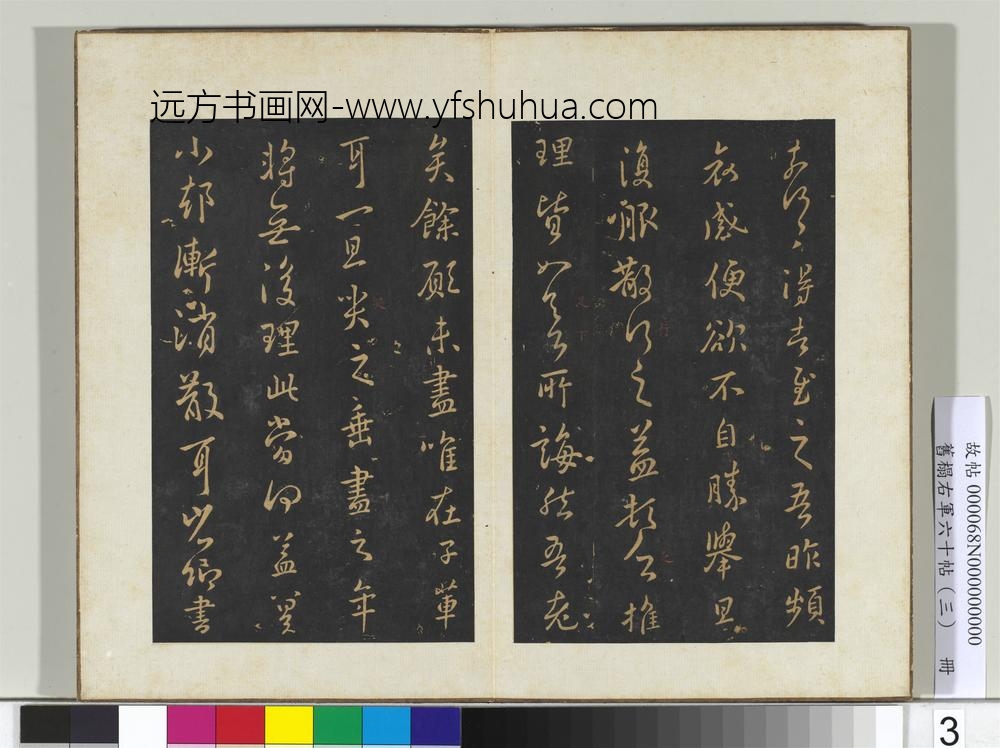 之吾昨頻
哀感便欲不自勝舉旦
復服散行之益頓乏推
理皆如足下所誨然吾老
矣餘願未盡唯在子輩
耳一旦哭之垂盡之年
將無復理此當何益冀
小却漸消散耳省卿書
远方书画网-www.yfshuhua.com
故帖000068N000000000
舊榻右軍六十帖(三) 冊
3